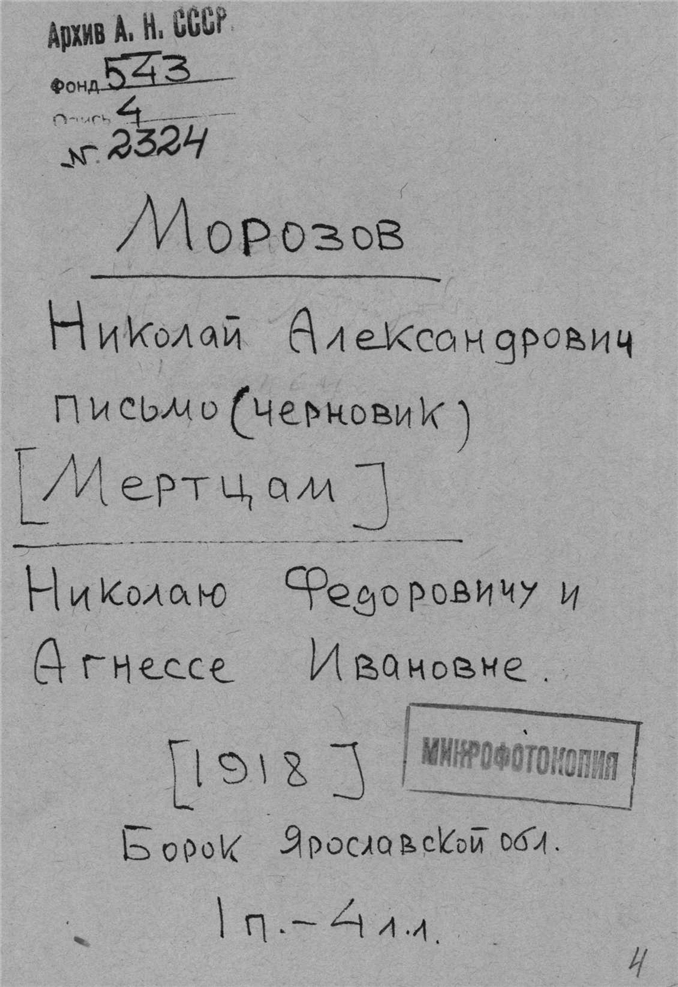 Архив А. Н. СССР
Фонд 543
Опись 4
№ 2324
Морозов
Николай Александрович
письмо (черновик)
[Мертцам]
Николаю Федоровичу и
Агнессе Ивановне.
[1918]
МИКРОФОТОКОПИЯ
Борок Ярославской обл.
1 п. - 4 л.л.
4